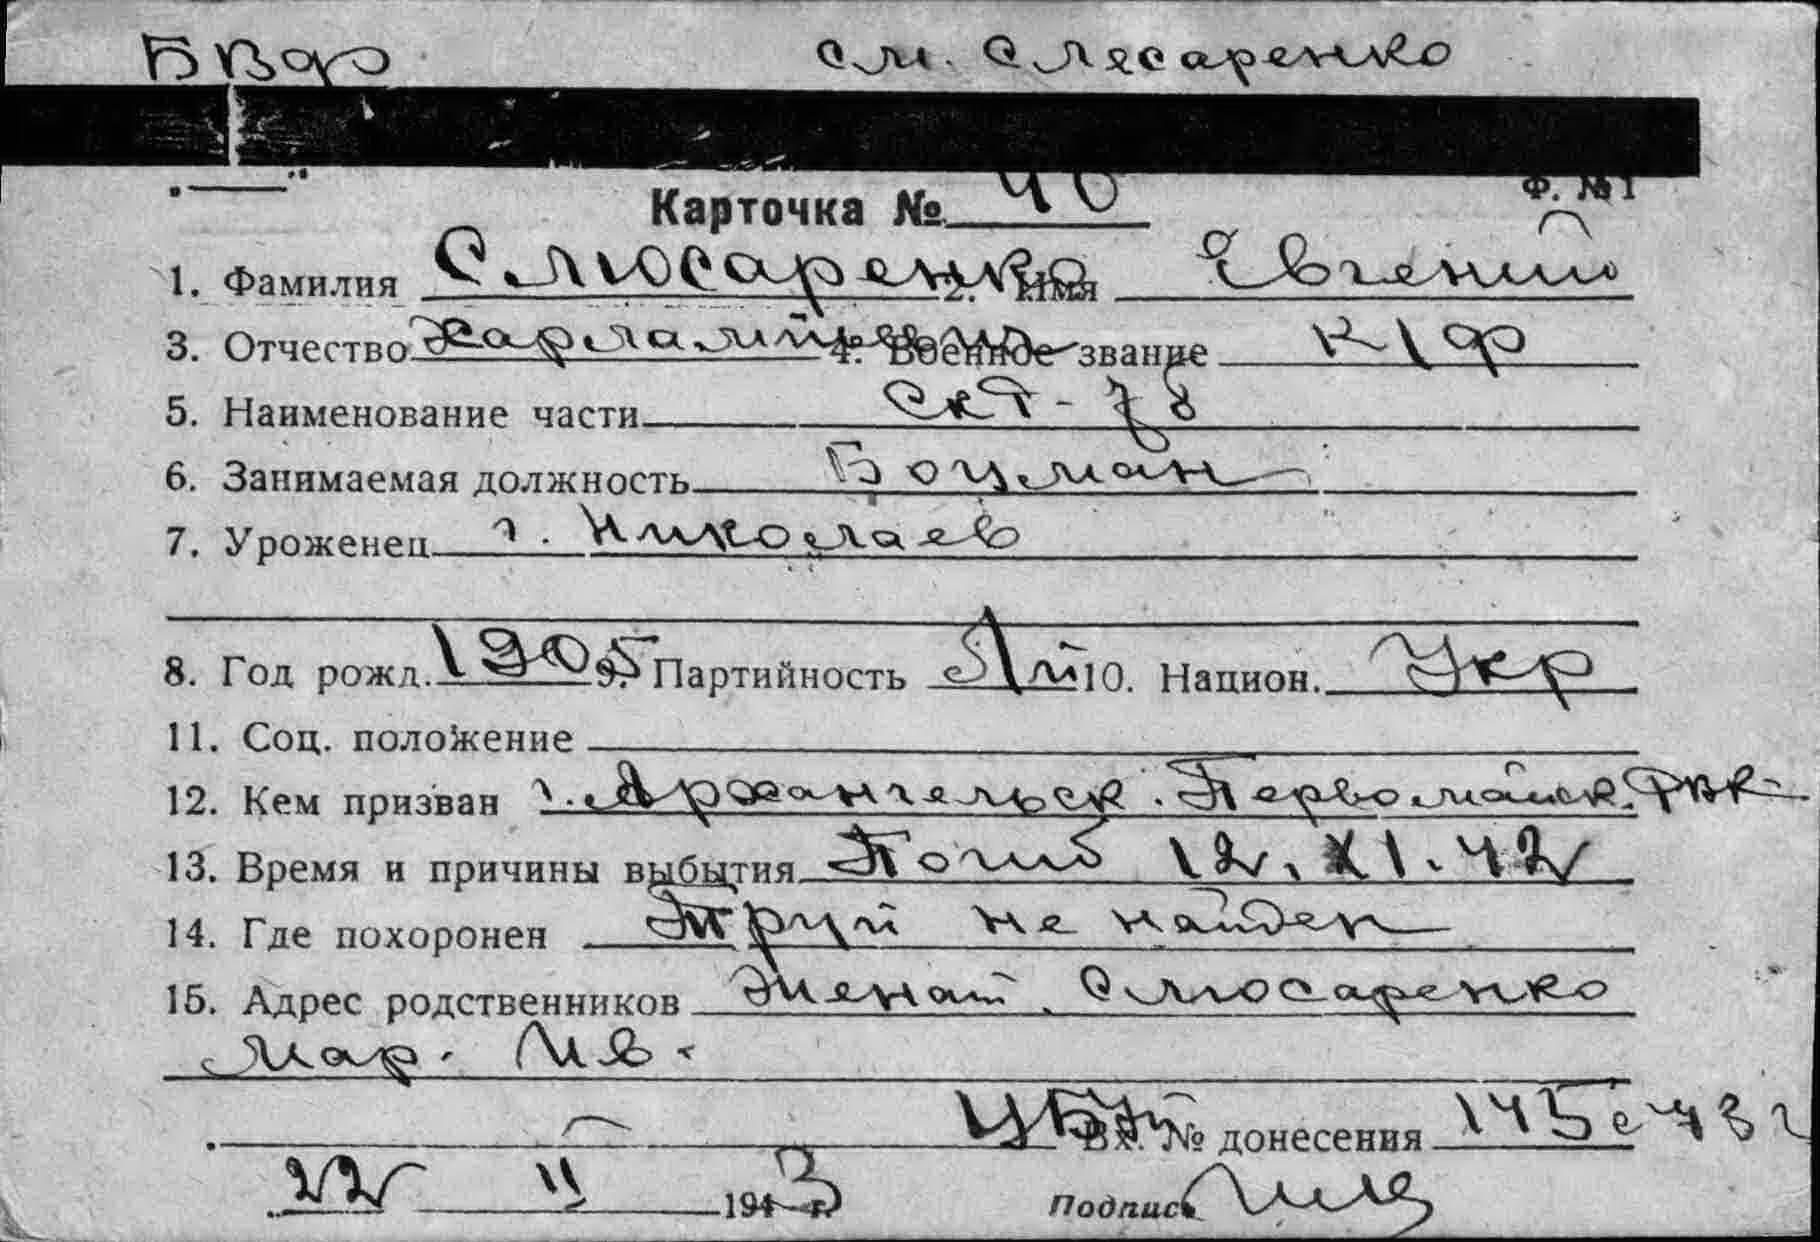 БВФ см. Слесаренко
Ф. №1
Карточка № 40
1. Фамилия Слюсаренко 2. Имя Евгений
3. Отчество Харлампиевич 4. Военное звание к/ф
5. Наименование части СКР-78
6. Занимаемая должность Боцман
7. Уроженец г. Николаев
8. Год рожд. 1905 9. Партийность 10. Национ. Укр
11. Соц. положение
12. Кем призван г. Архангельск. Первомайск. РВК
13. Время и причины выбытия Погиб 12.XI.42
14. Где похоронен Труп не найден
15. Адрес родственников Женат. Слюсаренко
Мар. Ив.
Вх. № донесения 145с 43 г
22 II 1943 г. Подпись